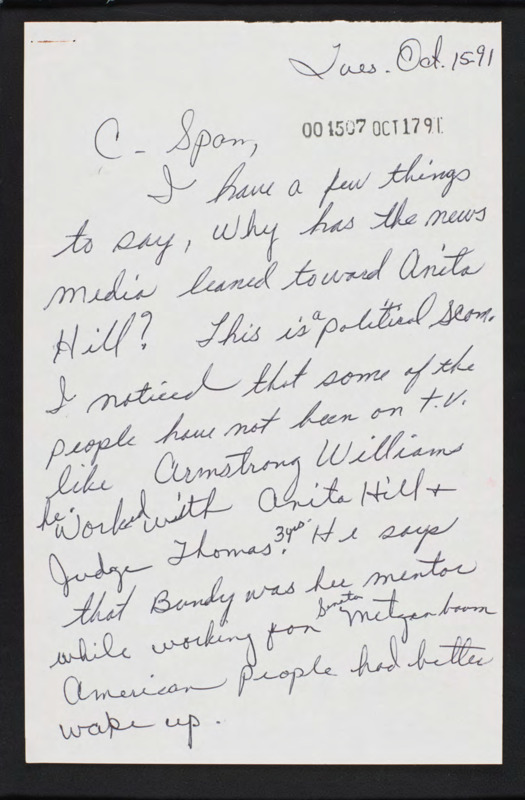 Tues. Oct. 15-91
001507 OCT 17 91
C-Span,
I have a few things
to say, Why has the news
media leaned toward Anita
Hill? This is a political scam.
I noticed that some of the
people have not been on t.v.
like Armstrong Williams
he worked with Anita Hill +
Judge Thomas 3yrs. He says
that Bundy was her mentor
while working for Senator Metzanbaum
American people had better
wake up.